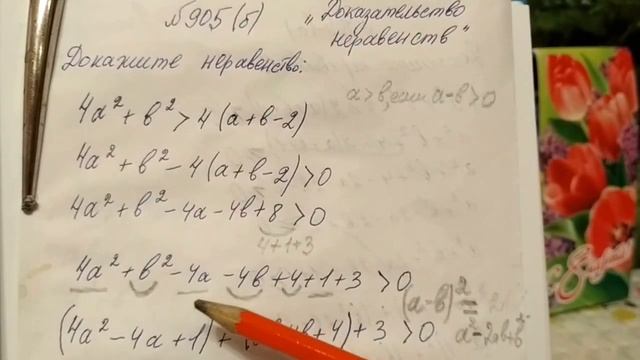 №905(б) "Доказательство
неравенств"
Докажите неравенство:
a>b, если a-b>0
4a²+b²>4(a+b-2)
4a²+b²-4(a+b-2)>0
4a²+b²-4a-4b+8>0
4+1+3
4a²+b²-4a-4b+4+1+3>0
(a-b)²=
(4a²-4a+1)+ b+4)+3>0
a²-2ab+b²